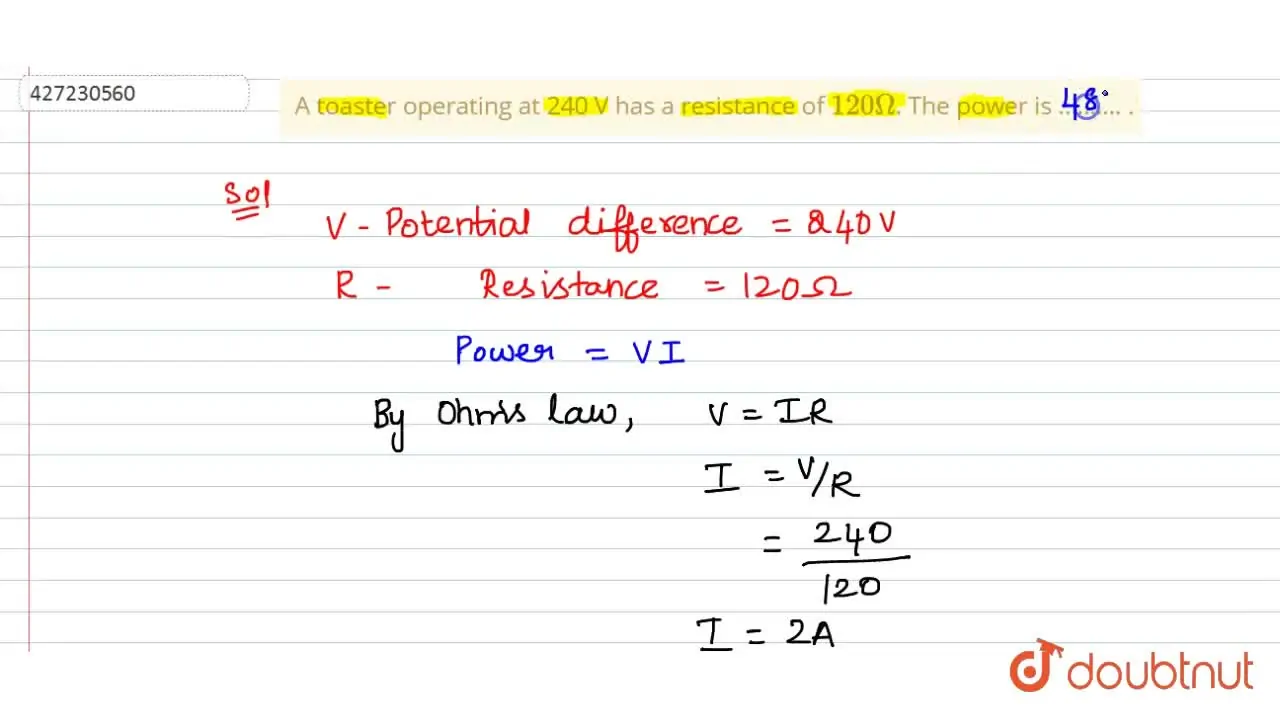 427230560
A toaster operating at 240 V has a resistance of 120Ω. The power is 48.......... .
Sol
V - Potential difference = 240V
R - Resistance = 120Ω
Power = VI
By Ohm's law, V = IR
I = V/R
= 240
120
I = 2A
doubtnut